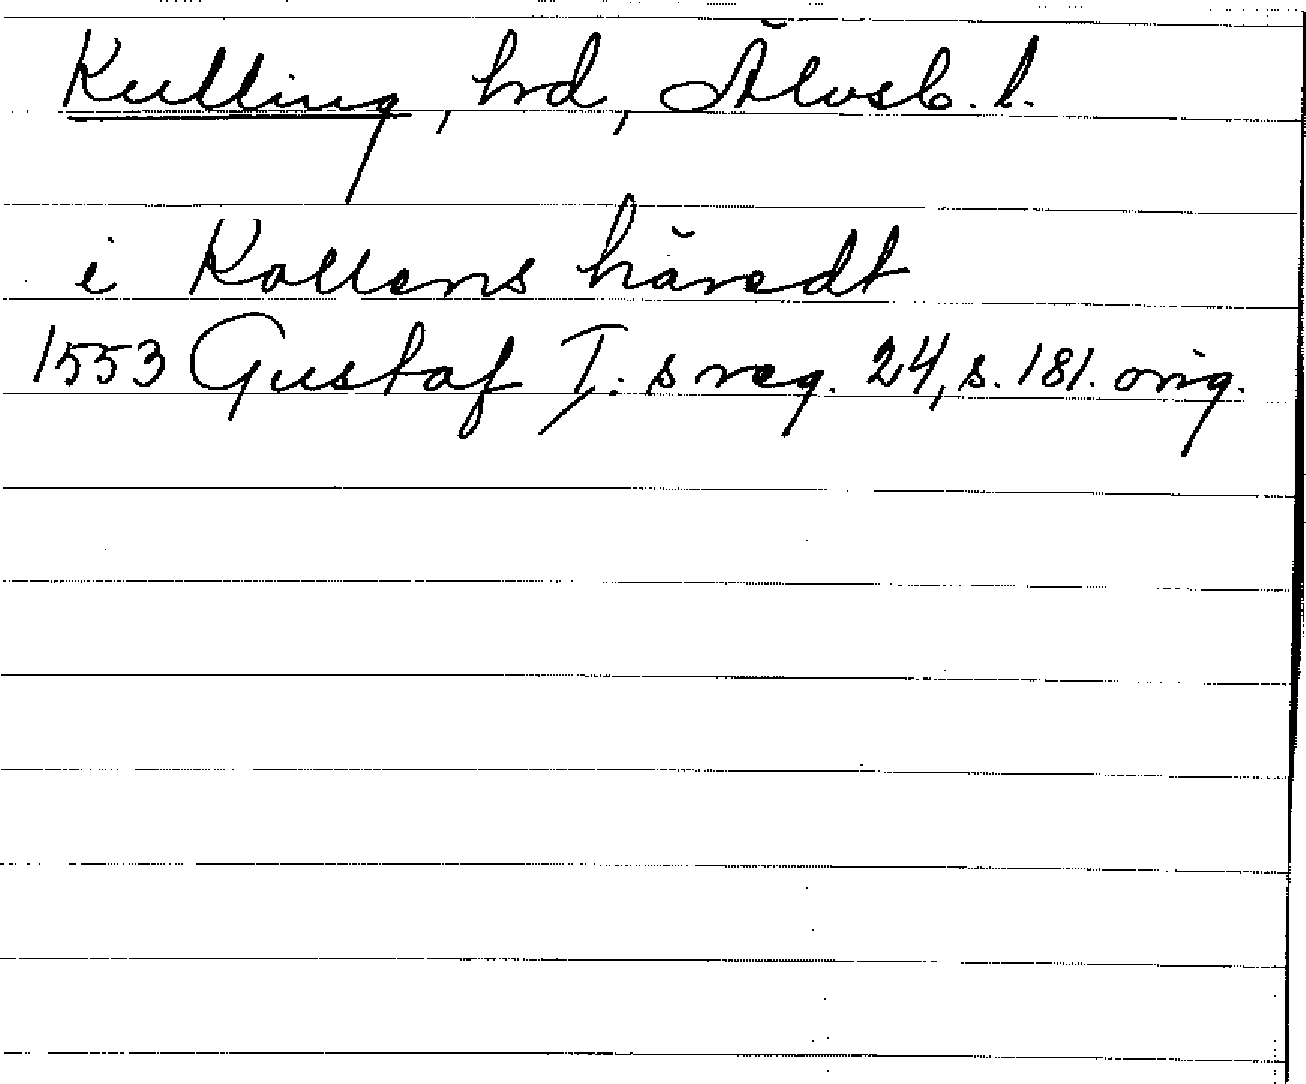 Kulling, hd, Älvsb. l.
i Kollens häredt
1553 Gustaf I:s reg. 24, s. 181. orig.